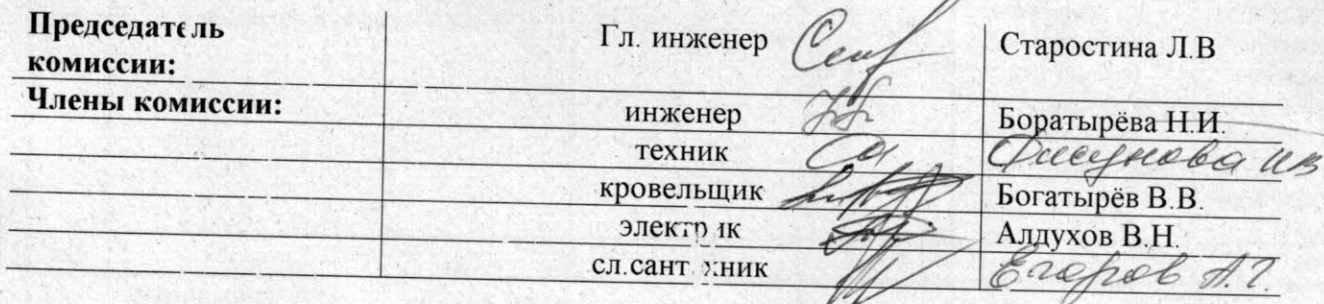 Председатель Гл. инженер Старостина Л.В
комиссии:
Члены комиссии:
инженер Боратырёва Н.И.
техник
кровельщик Богатырёв В.В.
электрик Алдухов В.Н.
сл.сантехник Егоров А.Г.